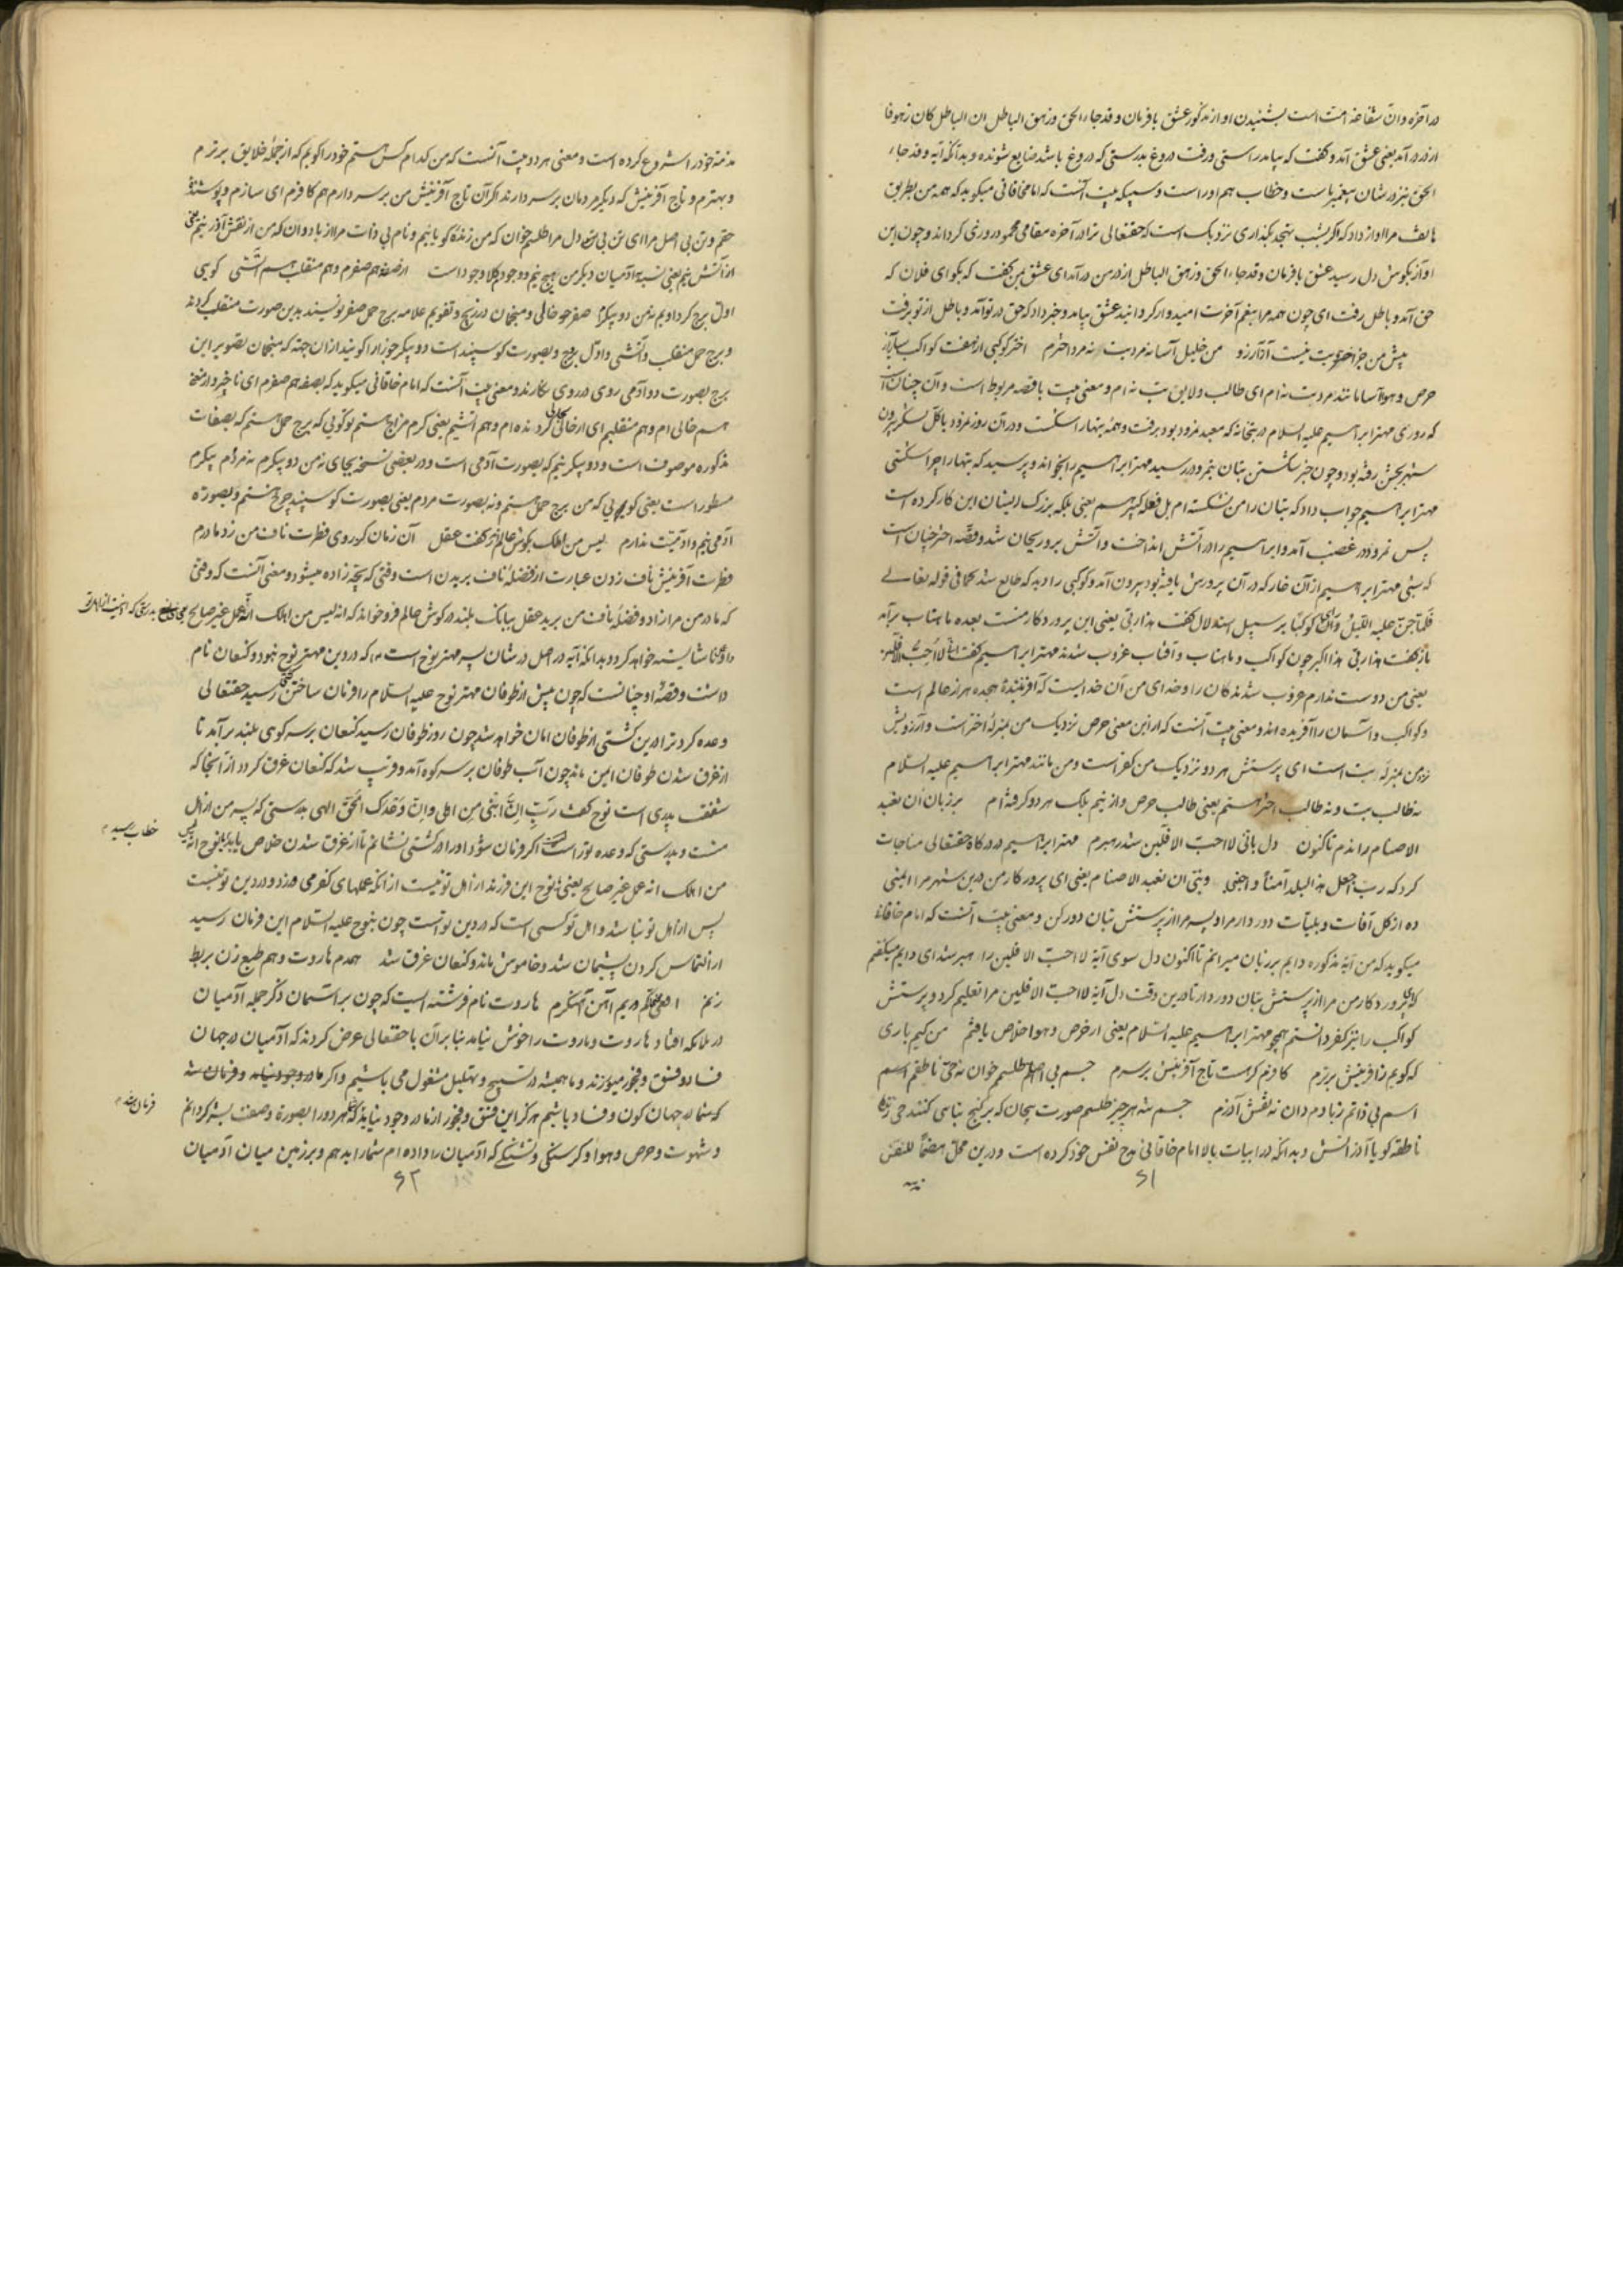 در آخره و آن شفاعة امت است بشنیدن او از مذکور عشق با فرمان و قد جاء الحق و زهق الباطل ان الباطل کان زهوقا
از در درآمد یعنی عشق آمد و گفت که بیامد راستی و رفت دروغ بدرستی که دروغ باشد ضایع شونده و بدانکه آیه و قد جاء
الحق نیز در شان پیغمبر ماست و خطاب هم اوراست و معنی بیت آنست که امام خاقانی میگوید که همه من بطریق
هاتف مرا آواز داد که اگر شب تهجد بگذاری نزدیک است که حقتعالی ترا در آخره مقامی محمود روزی گرداند و چون این
آواز بگوش دل رسید عشق با فرمان و قد جاء الحق و زهق الباطل از در من درآمد ای عشق بمن گفت که بگو ای فلان که
حق آمد و باطل رفت ای چون همه مرا بنعیم آخرت امیدوار گردانید عشق بیامد و خبر داد که حق در تو آمد و باطل از تو برفت
پیش من جز اختر و بت نیست آز و آرزو من خلیل آسا نه مرد بت نه مرد اخترم اختر کوکبی از هفت کواکب سیاره آز
حرص و هوا آسا مانند مرد بت نه ام ای طالب و لایق بت نه ام و معنی بیت با قصه مربوط است و آن چنان است
که روزی مهتر ابراهیم علیه السلام در بتخانه که معبد نمرود بود برفت و همه بتها را شکست و در آن روز نمرود با کل لشکر بیرون
شهر بجشن رفته بود و چون خبر شکستن بتان بنمرود رسید مهتر ابراهیم را بخواند و پرسید که بتها را چرا شکستی
مهتر ابراهیم جواب داد که بتان را من نشکسته ام بل فعله کبیرهم یعنی بلکه بزرگ ایشان این کار کرده است
پس نمرود در غضب آمد و ابراهیم را در آتش انداخت و آتش برو ریحان شد و قصه اختر چنان است
که شبی مهتر ابراهیم از آن غار که در آن پرورش یافته بود بیرون آمد و کوکبی را دید که طالع شد کما فی قوله تعالی
فلما جن علیه اللیل رای کوکبا بر سبیل استدلال گفت هذا ربی یعنی این پروردگار منست بعده ماهتاب برآمد
باز گفت هذا ربی هذا اکبر چون کواکب و ماهتاب و آفتاب غروب شدند مهتر ابراهیم گفت انی لا احب الآفلین
یعنی من دوست ندارم غروب شدندگان را و خدای من آن خدایست که آفرینندۀ هجده هزار عالم است
و کواکب و آسمان را آفریده اند و معنی بیت آنست که از این معنی حرص نزدیک من بمنزلۀ اختر است و آرزو پیش
نزد من بمنزلۀ بت است ای پرستش هر دو نزدیک من کفر است و من مانند مهتر ابراهیم علیه السلام
نه طالب بت و نه طالب اختر هستم یعنی طالب حرص و آز نیم بلک هر دو کرفته ام بر زبان ان نعبد
الاصنام راندم تاکنون دل بانی لا احب الآفلین شد رهبرم مهتر ابراهیم در درگاه حقتعالی مناجات
کرد که رب اجعل هذا البلد آمنا و اجنبنی و بنی ان نعبد الاصنام یعنی ای پروردگار من درین شهر مرا ایمنی
ده از کل آفات و بلیات دور دار مرا و پسر مرا از پرستش بتان دور کن و معنی بیت آنست که امام خاقانی
میگوید که من آیه مذکوره دایم بر زبان میرانم تا اکنون دل سوی آیه لا احب الآفلین را رهبر شد ای دایم میگفتم
که ای پروردگار من مرا از پرستش بتان دور دار تا درین وقت دل آیه لا احب الآفلین مرا تعلیم کرد و پرستش
کواکب را نیز کفر دانستم همچو مهتر ابراهیم علیه السلام یعنی از حرص و هوا خلاص یافتم من کیم باری
که گویم ز آفرینش برترم کافرم گر هست تاج آفرینش بر سرم جسم بی اصلم طلسم خوان نه حی ناطقم
اسم بی ذاتم ز بادم دان نه نقش آذرم جسم تنه هر چیز طلسم صورت پیچان که بر گنج بنا می کنند حی زنده
ناطقه گویا آذر آتش و بدانکه در ابیات بالا امام خاقانی مدح نفس خود کرده است و درین محل هضما للنفس
۶۱
مذمة خود را شروع کرده است و معنی هر دو بیت آنست که من کدام کس هستم خود را گویم که از جمله خلایق برترم
و بهترم و تاج آفرینش که دیگر مردمان بر سر دارند اگر آن تاج آفرینش من بر سر دارم هم کافرم ای سازم و پوشنده
حقم و تن بی اصل مرا ای تن بی دل مرا طلسم خوان که من زنده گویا نیم و نام بی ذات مرا از باد دان که من از نقش آذر نیم یعنی
از آتش نیم یعنی نسبه آدمیان دیگر من هیچ نیم و وجودم کلا وجود است از صفر هم صفرم و هم منقلب هم آتشی گویی
اول برج گردونم نه من دو پیکرم صفر جو خالی و منجمان در زیج و تقویم علامه برج حمل صفر نویسند بدین صورت منقلب گردنده
و برج حمل منقلب و آتشی و اول برج و بصورت گوسپند است دو پیکر جوزا را گویند از آن جهة که منجمان تصویر این
برج بصورت دو آدمی روی در روی نگارند و معنی بیت آنست که امام خاقانی میگوید که بصفه هم صفرم ای ناچیز و از همه
هم خالی ام و هم منقلبم ای از حالی بحالی گردنده ام و هم آتشیم یعنی گرم مزاج هستم تو گویی که برج حمل هستم که بصفات
مذکوره موصوف است و دو پیکر نیم که بصورت آدمی است و در بعضی نسخه بجای نه من دو پیکرم نه مردم پیکرم
مسطور است یعنی گویی که من برج حمل هستم و نه بصورت مردم یعنی بصورت گوسپند چرخ هستم و بصورة
آدمی نیم و آدمیت ندارم لیس من اهلک بگوش عالم در گفت عقل آن زمان کز روی فطرت ناف من زد مادرم
فطرت آفرینش ناف زدن عبارت از فضله ناف بریدن است وقتی که بچه زاده میشود و معنی آنست که وقتی
که مادر من مرا زاد و فضله ناف من برید عقل ببانگ بلند در گوش عالم فرو خواند که انه لیس من اهلک انه عمل غیر صالح
بدرستی که او نیست از اهل تو
و او کنا شایسته خواهد کرد و بدانکه آیه در اصل در شان پسر مهتر نوح است که در دین مهتر نوح نبود و کنعان نام
داشت و قصۀ او چنانست که چون پیش از طوفان مهتر نوح علیه السلام را فرمان ساختن کشتی رسید حقتعالی
وعده کرد ترا در این کشتی از طوفان امان خواهد شد چون روز طوفان رسید کنعان بر سر کوهی بلند برآمد تا
از غرق شدن طوفان ایمن ماند چون آب طوفان بر سر کوه آمد و قریب شد که کنعان غرق گردد از آنجا که
شفقت پدری است نوح گفت رب ان ابنی من اهلی و ان وعدک الحق الهی بدرستی که پسر من از اهل
منست و بدرستی که وعده تو راست است اگر فرمان شود او را در کشتی نشانم تا از غرق شدن خلاص یابد بنوح انه لیس
خطاب رسید
من اهلک انه عمل غیر صالح یعنی ای نوح این فرزند از اهل تو نیست از آنکه عملهای کفر می ورزد و در دین تو نیست
پس از اهل تو نباشد و اهل تو کسی است که در دین تو است چون بنوح علیه السلام این فرمان رسید
از التماس کردن پشیمان شد و خاموش ماند و کنعان غرق شد همدم هاروت و هم طبع زن بربط
زنم هاروت نام فرشته ایست که چون بر آسمان ذکر جمله آدمیان
در ملائکه افتاد هاروت و ماروت را خوش نیامد بنابر آن با حقتعالی عرض کردند که آدمیان در جهان
فساد و فسق و فجور میورزند و ما همیشه در تسبیح و تهلیل مشغول می باشیم و اگر ما در وجود بیاییم و فرمان شد
که شما در جهان کون و فساد باشیم هرگز این فسق و فجور از ما در وجود نیاید که هر دو را بصورة و صفت بشر گردانم
فرمان شد
و شهوت و حرص و هوا و گرسنگی و تشنگی که آدمیان را داده ام شما را بدهم و بر زمین میان آدمیان
۶۲